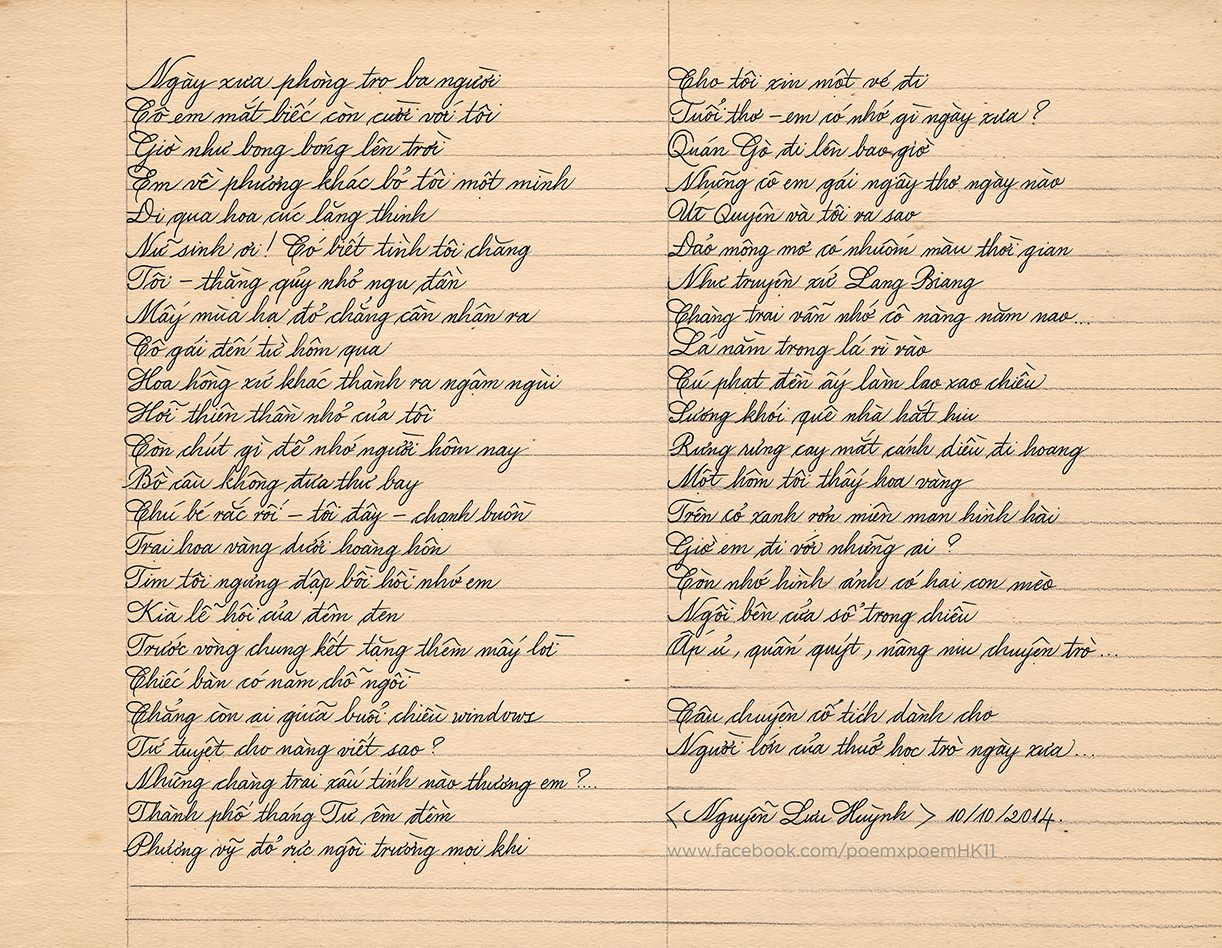 Ngày xưa phòng trọ ba người
Cô em mắt biếc còn cười với tôi
Giờ như bong bóng lên trời
Em về phương khác bỏ tôi một mình
Đi qua hoa cúc lặng thinh
Nữ sinh ơi! Có biết tình tôi chăng
Tôi - thằng quỷ nhỏ ngu đần
Mấy mùa hạ đỏ chẳng cần nhận ra
Cô gái đến từ hôm qua
Hoa hồng xứ khác thành ra ngậm ngùi
Hỡi thiên thần nhỏ của tôi
Còn chút gì để nhớ người hôm nay
Bồ câu không đưa thư bay
Chú bé rắc rối - tôi đây - chanh buồn
Trại hoa vàng dưới hoàng hôn
Tim tôi ngưng đập bồi hồi nhớ em
Kìa lễ hội của đêm đen
Trước vòng chung kết tặng thêm mấy lời
Chiếc bàn có năm chỗ ngồi
Chẳng còn ai giữa buổi chiều windows
Tứ tuyệt cho nàng viết sao?
Những chàng trai xấu tính nào thương em?...
Thành phố tháng Tư êm đềm
Phượng vỹ đỏ rực ngôi trường mọi khi
Cho tôi xin một vé đi
Tuổi thơ - em có nhớ gì ngày xưa?
Quán Gò đi lên bao giờ
Những cô em gái ngây thơ ngày nào
Út Quyên và tôi ra sao
Đảo mộng mơ có nhuốm màu thời gian
Như truyện xứ Lang Biang
Chàng trai vẫn nhớ cô nàng năm nao...
Lá nằm trong lá rì rào
Cú phạt đền ấy làm lao xao chiều
Sương khói quê nhà hắt hiu
Rưng rưng cay mắt cánh diều đi hoang
Một hôm tôi thấy hoa vàng
Trên cỏ xanh rờn miên man hình hài
Giờ em đi với những ai?
Còn nhớ hình ảnh có hai con mèo
Ngồi bên cửa sổ trong chiều
Ấp ủ, quấn quýt, nâng niu chuyện trò...
Câu chuyện cổ tích dành cho
Người lớn của thuở học trò ngày xưa...
< Nguyễn Lưu Huỳnh > 10/10/2014.
www.facebook.com/poemxpoemHK11